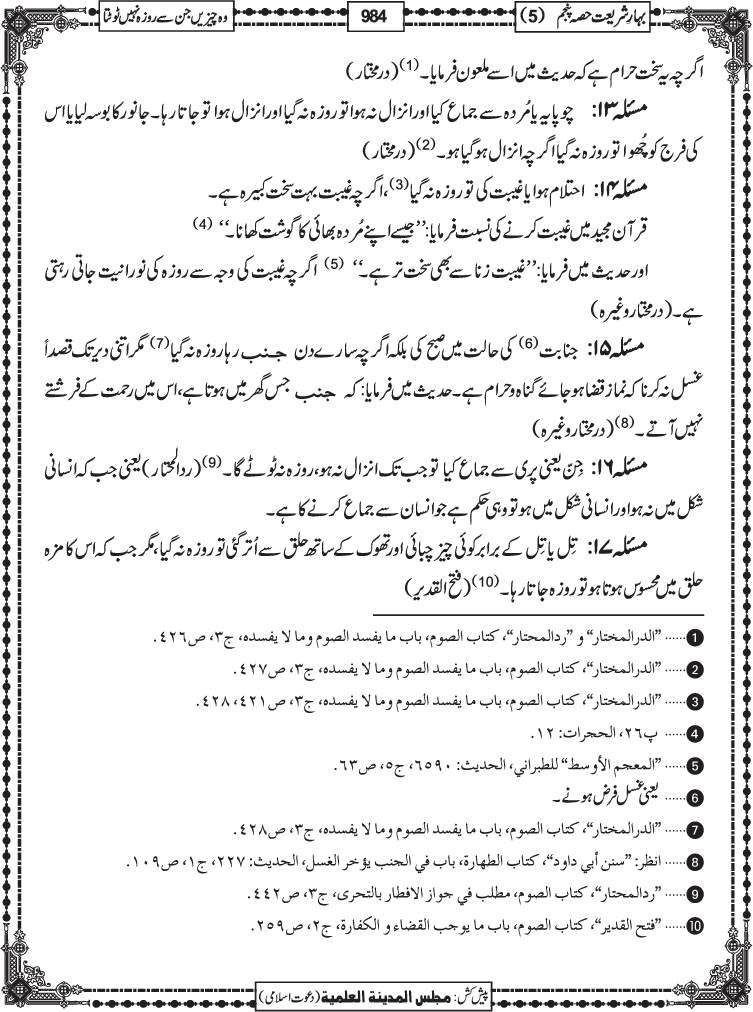 بہار شریعت حصہ پنجم (5)
984
وہ چیزیں جن سے روزہ نہیں ٹوٹتا
اگرچہ یہ سخت حرام ہے کہ حدیث میں اسے ملعون فرمایا۔(1) (درمختار)
مسئلہ ۱۳: چوپایہ یا مُردہ سے جماع کیا اور انزال نہ ہوا تو روزہ نہ گیا اور انزال ہوا تو جاتا رہا۔ جانور کا بوسہ لیا یا اس
کی فرج کو چُھوا تو روزہ نہ گیا اگرچہ انزال ہوگیا ہو۔(2) (درمختار)
مسئلہ ۱۴: احتلام ہوا یا غیبت کی تو روزہ نہ گیا(3)، اگرچہ غیبت بہت سخت کبیرہ ہے۔
قرآن مجید میں غیبت کرنے کی نسبت فرمایا: ’’جیسے اپنے مُردہ بھائی کا گوشت کھانا۔‘‘ (4)
اور حدیث میں فرمایا: ’’غیبت زنا سے بھی سخت تر ہے۔‘‘ (5) اگرچہ غیبت کی وجہ سے روزہ کی نورانیت جاتی رہتی
ہے۔ (درمختار وغیرہ)
مسئلہ ۱۵: جنابت(6) کی حالت میں صبح کی بلکہ اگرچہ سارے دن جنب رہا روزہ نہ گیا(7) مگر اتنی دیر تک قصداً
غسل نہ کرنا کہ نماز قضا ہو جائے گناہ و حرام ہے۔ حدیث میں فرمایا: کہ جنب جس گھر میں ہوتا ہے، اس میں رحمت کے فرشتے
نہیں آتے۔(8) (درمختار وغیرہ)
مسئلہ ۱۶: جِن یعنی پری سے جماع کیا تو جب تک انزال نہ ہو، روزہ نہ ٹوٹے گا۔(9) (ردالمحتار) یعنی جب کہ انسانی
شکل میں نہ ہو اور انسانی شکل میں ہو تو وہی حکم ہے جو انسان سے جماع کرنے کا ہے۔
مسئلہ ۱۷: تِل یا تِل کے برابر کوئی چیز چبائی اور تھوک کے ساتھ حلق سے اُتر گئی تو روزہ نہ گیا، مگر جب کہ اس کا مزہ
حلق میں محسوس ہوتا ہو تو روزہ جاتا رہا۔(10) (فتح القدیر)
1 ...... ’’الدرالمختار‘‘ و ’’ردالمحتار‘‘، كتاب الصوم، باب ما يفسد الصوم وما لا يفسده، ج٣، ص٤٢٦.
2 ...... ’’الدرالمختار‘‘، كتاب الصوم، باب ما يفسد الصوم وما لا يفسده، ج٣، ص٤٢٧.
3 ...... ’’الدرالمختار‘‘، كتاب الصوم، باب ما يفسد الصوم وما لا يفسده، ج٣، ص٤٢١، ٤٢٨.
4 ...... پ٢٦، الحجرات: ١٢.
5 ...... ’’المعجم الأوسط‘‘ للطبراني، الحديث: ٦٥٩٠، ج٥، ص٦٣.
6 ...... یعنی غسل فرض ہونے۔
7 ...... ’’الدرالمختار‘‘، كتاب الصوم، باب ما يفسد الصوم وما لا يفسده، ج٣، ص٤٢٨.
8 ...... انظر: ’’سنن أبي داود‘‘، كتاب الطهارة، باب في الجنب يؤخر الغسل، الحديث: ٢٢٧، ج١، ص١٠٩.
9 ...... ’’ردالمحتار‘‘، كتاب الصوم، مطلب في جواز الافطار بالتحرى، ج٣، ص٤٤٢.
10 ...... ’’فتح القدير‘‘، كتاب الصوم، باب ما يوجب القضاء و الكفارة، ج٢، ص٢٥٩.
پیش کش: مجلس المدینة العلمیة (دعوت اسلامی)